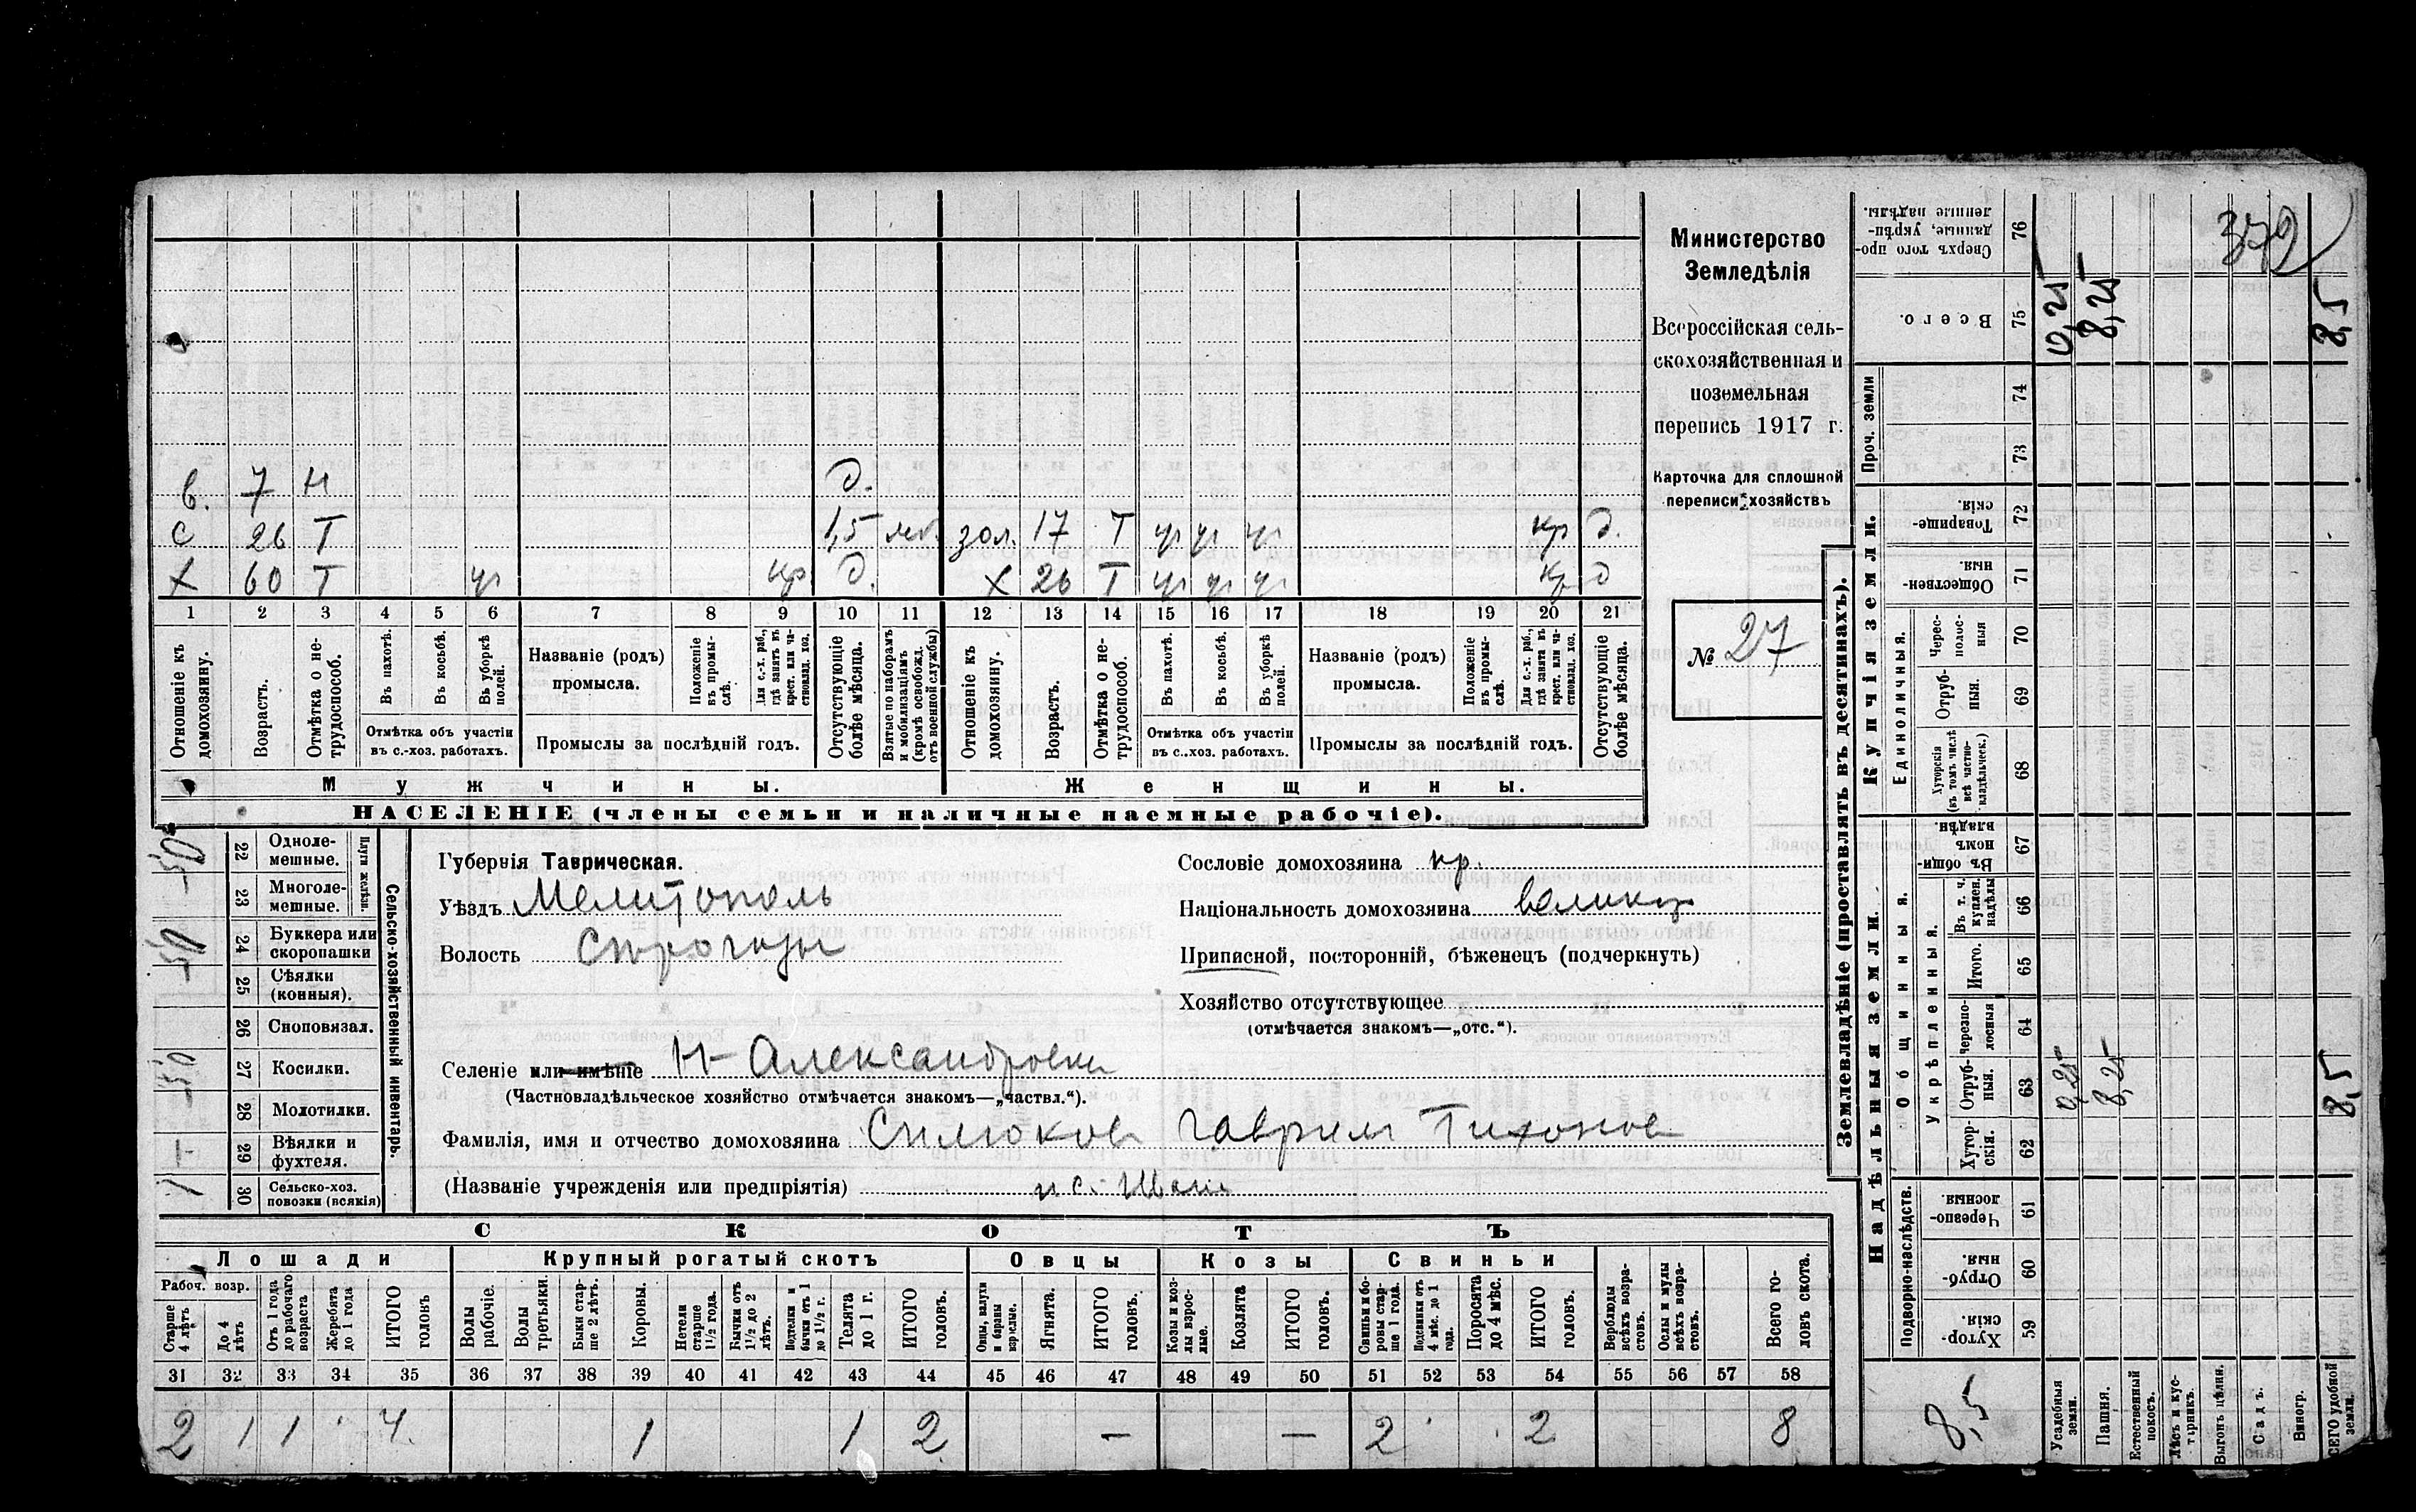 372
Министерство
Земледѣлія
Всероссійская сель-
скохозяйственная и
поземельная
перепись 1917 г.
Карточка для сплошной
переписи хозяйствъ
№ 27
в. 7 н д.
с 26 Т 1,5 зол. 17 Т ур ур ур кр д.
х 60 Т ур кр д. х 26 Т ур ур ур кр д
1 2 3 4 5 6 7 8 9 10 11 12 13 14 15 16 17 18 19 20 21
Отношеніе къ домохозяину.
Возрастъ.
Отмѣтка о не-трудоспособ.
Въ пахотѣ.
Въ косьбѣ.
Въ уборкѣ полей.
Отмѣтка объ участіи
въ с.-хоз. работахъ.
Названіе (родъ)
промысла.
Положеніе въ промы-слѣ.
Для с.-х. раб., гдѣ занятъ въ крест. или ча-стновлад. хоз.
Промыслы за послѣдній годъ.
Отсутствующіе болѣе мѣсяца.
Взятые по наборамъ и мобилизаціямъ (кромѣ освобожд. отъ военной службы)
Отношеніе къ домохозяину.
Возрастъ.
Отмѣтка о не-трудоспособ.
Въ пахотѣ.
Въ косьбѣ.
Въ уборкѣ полей.
Отмѣтка объ участіи
въ с.-хоз. работахъ.
Названіе (родъ)
промысла.
Положеніе въ промы-слѣ.
Для с.-х. раб., гдѣ занята въ крест. или ча-стновлад. хоз.
Промыслы за послѣдній годъ.
Отсутствующіе болѣе мѣсяца.
Мужчины.
Женщины.
НАСЕЛЕНІЕ (члены семьи и наличные наемные рабочіе).
Сельско-хозяйственный инвентарь.
Плуги желѣзн.
50 22 Одноле-мешные.
23 Многоле-мешные.
50 24 Буккера или скоропашки
25 Сѣялки (конныя).
26 Сноповязал.
50 27 Косилки.
28 Молотилки.
29 Вѣялки и фухтеля.
1 30 Сельско-хоз. повозки (всякія)
Губернія Таврическая.
Уѣздъ Мелитополь
Волость Строгозы
Селеніе или имѣніе Н-Александровка
(Частновладѣльческое хозяйство отмѣчается знакомъ—„частвл.“).
Фамилія, имя и отчество домохозяина Силюков Гаврил Тихонов
(Названіе учрежденія или предпріятія)
Сословіе домохозяина кр.
Національность домохозяина великор
Приписной, посторонній, бѣженецъ (подчеркнуть)
Хозяйство отсутствующее
(отмѣчается знакомъ—„отс.“).
СКОТЪ
Лошади Крупный рогатый скотъ Овцы Козы Свиньи
Рабоч. возр.
Старше 4 лѣтъ
До 4 лѣтъ
Отъ 1 года до рабочаго возраста
Жеребята до 1 года
ИТОГО головъ
Волы рабочіе.
Волы третьяки.
Быки стар-ше 2 лѣтъ.
Коровы.
Нетели старше 1½ года.
Бычки отъ 1½ до 2 лѣтъ.
Подтелки и бычки отъ 1 до 1½ г.
Телята до 1 г.
ИТОГО головъ.
Овцы, валухи и бараны взрослые.
Ягнята.
ИТОГО головъ.
Козы и коз-лы взрос-лые.
Козлята
ИТОГО головъ.
Свиньи и бо-ровы стар-ше 1 года.
Подсвинки отъ 4 мѣс. до 1 года.
Поросята до 4 мѣс.
ИТОГО головъ.
Верблюды всѣхъ возра-стовъ.
Ослы и мулы всѣхъ возра-стовъ.
Всего го-ловъ скота.
31 32 33 34 35 36 37 38 39 40 41 42 43 44 45 46 47 48 49 50 51 52 53 54 55 56 57 58
2 1 1 4 1 1 2 — — 2 2 8
Землевладѣніе (проставлять въ десятинахъ).
Купчія земли.
Надѣльныя земли.
Сверхъ того про-данные, укрѣп-ленные надѣлы. 76
Всего. 75 0,25 8,25 8,5
Проч. земли 74
73
Товарище-скія. 72
Обществен-ныя. 71
Единоличныя.
Черес-полос-ныя 70
Отруб-ныя. 69
Хуторскія (въ томъ числѣ всѣ частно-владѣльческ.) 68
Общинныя.
Въ общин-номъ владѣн. 67
Укрѣпленныя.
Въ т. ч. куплен. надѣлы 66
Итого. 65
Черезпо-лосныя 64
Отруб-ныя. 63 0,25 8,25 8,5
Хутор-скія. 62
Подворно-наслѣдств.
Черезпо-лосныя. 61
Отруб-ныя. 60
Хутор-скія. 59
8,5
Усадебныя земли.
Пашня.
Естественный покосъ.
Лѣсъ и кус-тарникъ.
Выгонъ цѣлин.
Садъ.
Виногр.
ВСЕГО удобной земли.